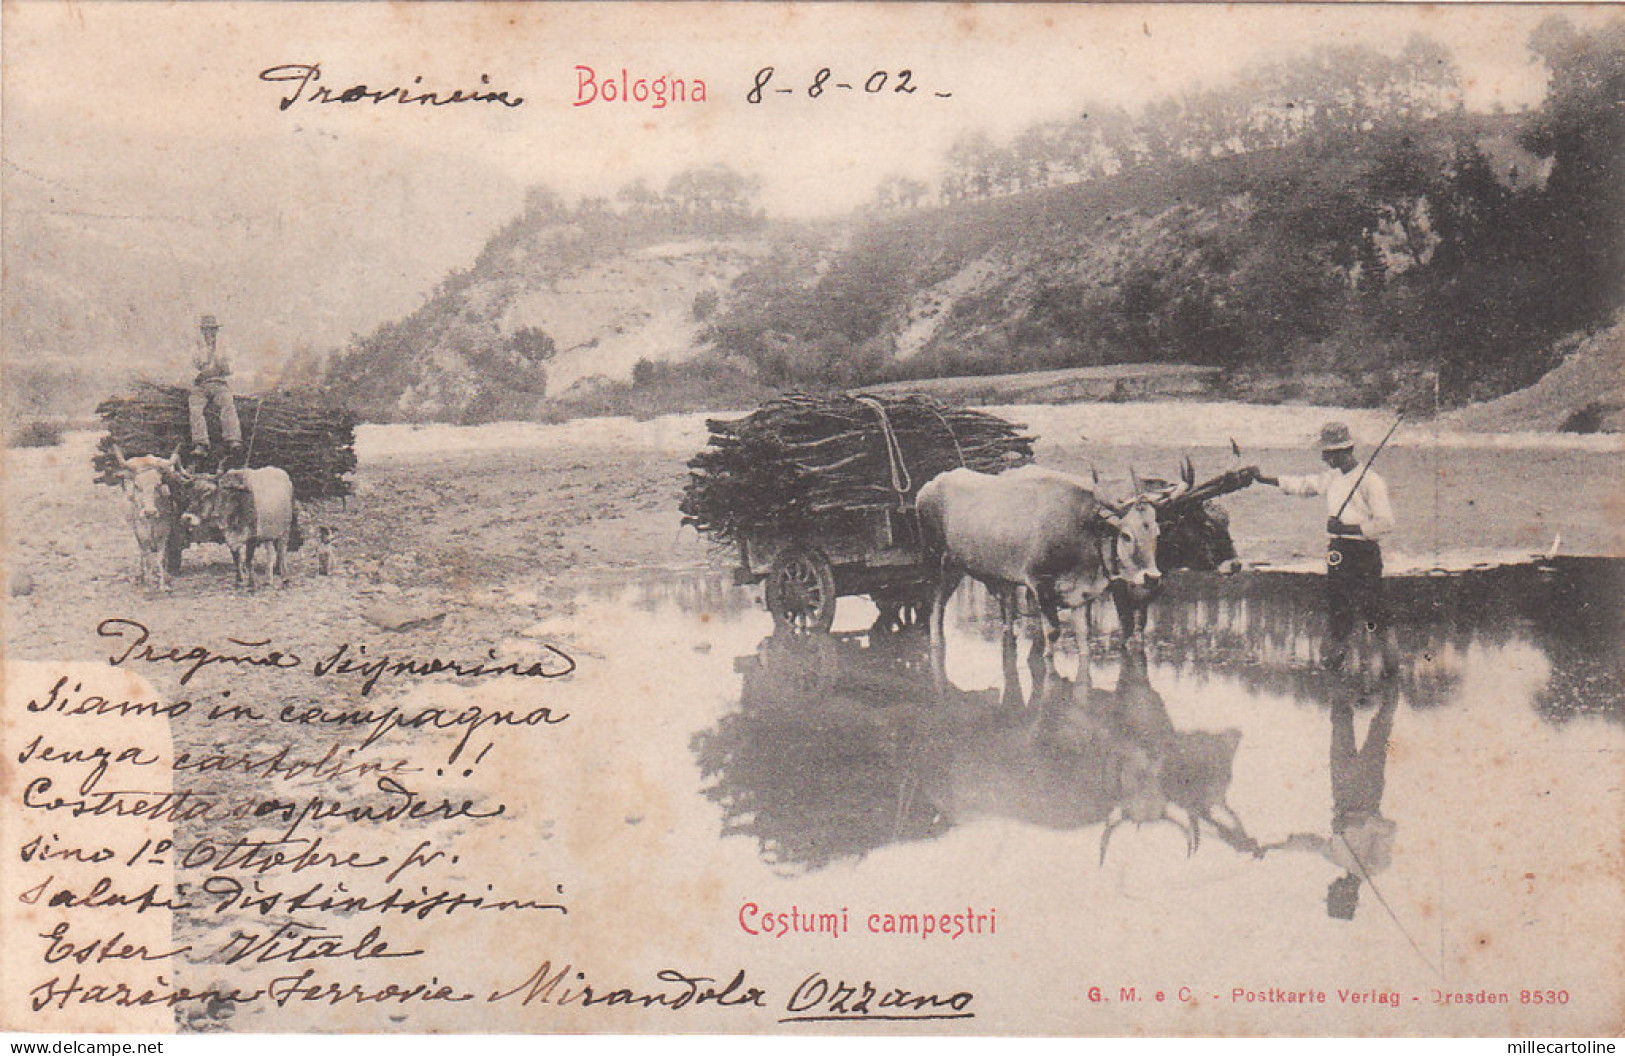 Provincia Bologna 8-8-02-
Pregma Signorina
Siamo in campagna
senza cartoline..!
Costretta sospendere
sino 1º Ottobre pr.
Saluti distintissimi
Ester Vitale
Stazione Ferrovia Mirandola Ozzano
Costumi campestri
G. M. e C. - Postkarte Verlag - Dresden 8530
delcampe.net
millecartoline